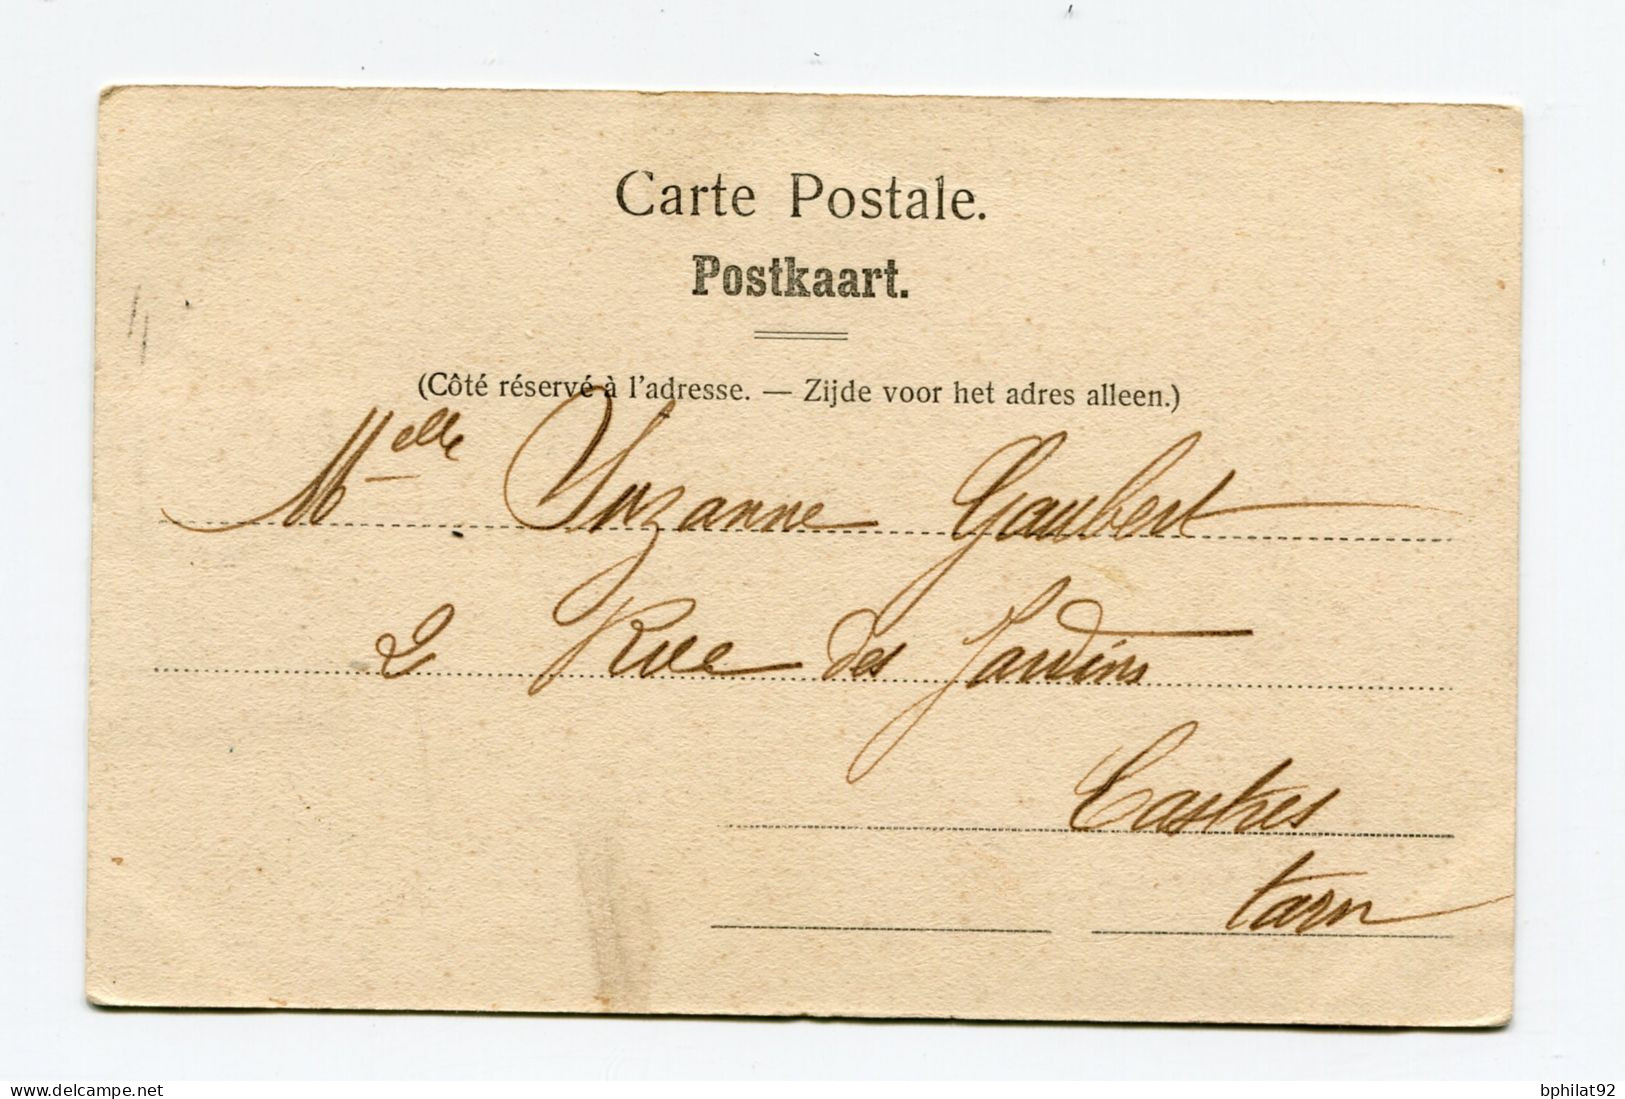 Carte Postale.
Postkaart.
(Côté réservé à l'adresse. — Zijde voor het adres alleen.)
Melle Suzanne Gaubert
2 Rue des Jardins
Castres
tarn
bphilat92